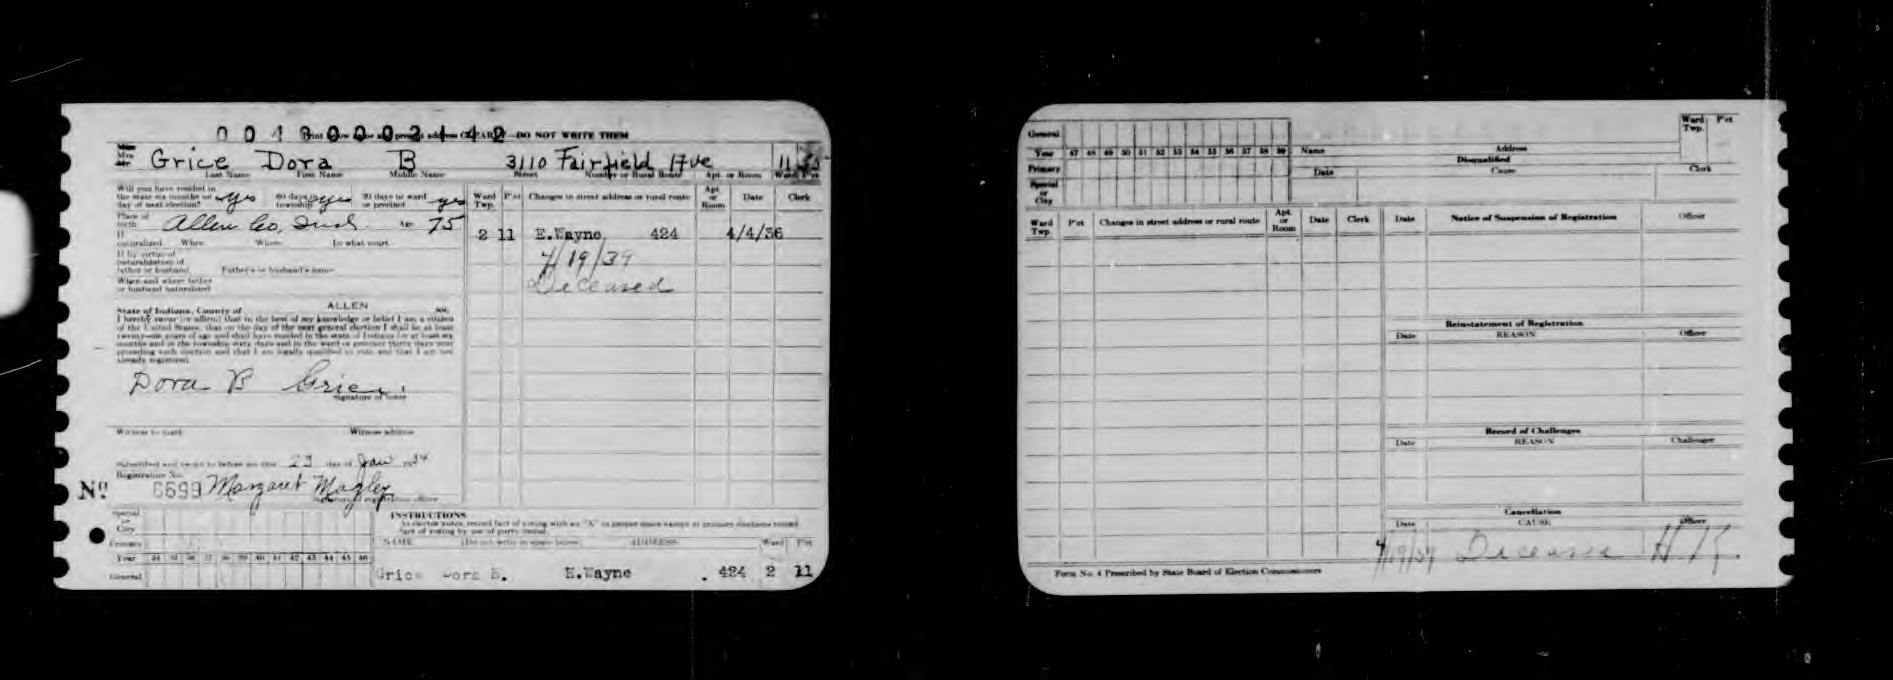 Print DO NOT WRITE THEM
Mrs Grice Dora B 3110 Fairfield Ave 11
Last Name First Name Middle Name Street Number or Rural Route Apt. or Room Ward P'ct
Will you have resided in
the state six months on yes 60 days in yes 30 days in ward yes
day of next election? township or precinct
Place of
birth Allen Co, Ind. Age 75
If
naturalized When Where In what court
If by virtue of
naturalization of
father or husband Father's or husband's name
When and where father
or husband naturalized
ALLEN
State of Indiana, County of ss:
I hereby swear (or affirm) that to the best of my knowledge or belief I am a citizen
of the United States, that on the day of the next general election I shall be at least
twenty-one years of age and shall have resided in the state of Indiana for at least six
months and in the township sixty days and in the ward or precinct thirty days next
preceding such election and that I am legally qualified to vote and that I am not
already registered.
Dora B Grice
Signature of voter
Witness to mark Witness address
Subscribed and sworn to before me this 23 day of Jan 1934
Registration No.
No 6699 Margaret Magley
Signature of registration officer
Ward Twp. P'ct Changes in street address or rural route Apt. or Room Date Clerk
2 11 E.Wayne 424 4/4/36
4/19/39
Deceased
INSTRUCTIONS
As elector votes, record fact of voting with an "X" in proper space except at primary elections record
fact of voting by use of party initial.
NAME (Do not write in space below) ADDRESS Ward P'ct
Special
or
City
Primary
Year 34 35 36 37 38 39 40 41 42 43 44 45 46
General
Grice Dora B. E.Wayne 424 2 11
General
Year 47 48 49 50 51 52 53 54 55 56 57 58 59
Primary
Special
or
City
Name Address Ward Twp. P'ct
Disqualified
Date Cause Clerk
Ward Twp. P'ct Changes in street address or rural route Apt. or Room Date Clerk
Date Notice of Suspension of Registration Officer
Reinstatement of Registration
Date REASON Officer
Record of Challenges
Date REASON Challenger
Cancellation
Date CAUSE Officer
4/19/39 Deceased
Form No. 4 Prescribed by State Board of Election Commissioners